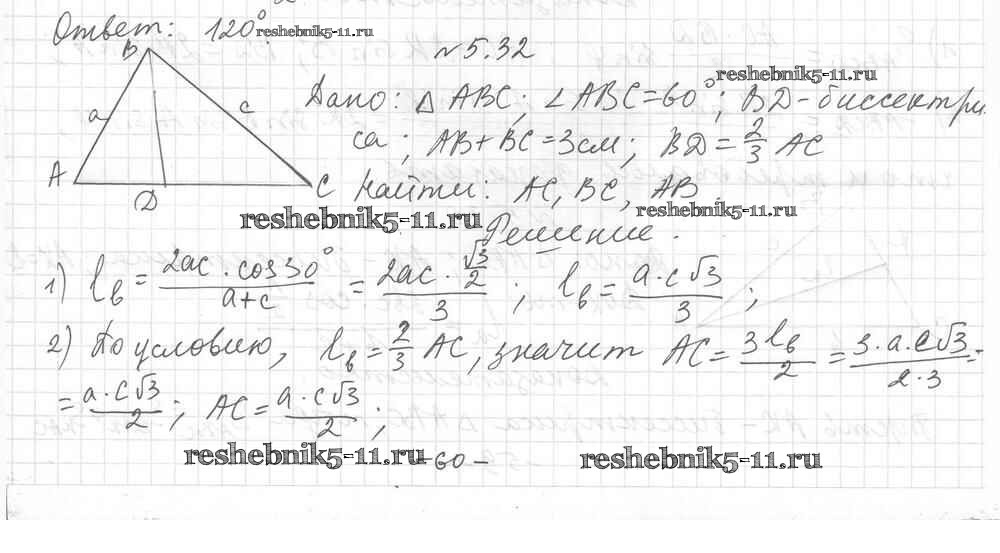 Ответ: 120°. reshebnik5-11.ru
N 5.32
reshebnik5-11.ru
B
a
c
A
D
C
Дано: △ ABC; ∠ ABC = 60°; BD - биссектри
са; AB + BC = 3см; BD = 2/3 AC
Найти: AC, BC, AB.
reshebnik5-11.ru
reshebnik5-11.ru
Решение.
1) l_b = 2ac · cos30° / a+c = 2ac · √3/2 / 3 ; l_b = a·c√3 / 3 ;
2) По условию, l_b = 2/3 AC, значит AC = 3 l_b / 2 = 3·a·c√3 / 2·3 =
= a·c√3 / 2 ; AC = a·c√3 / 2 ;
reshebnik5-11.ru -60- reshebnik5-11.ru